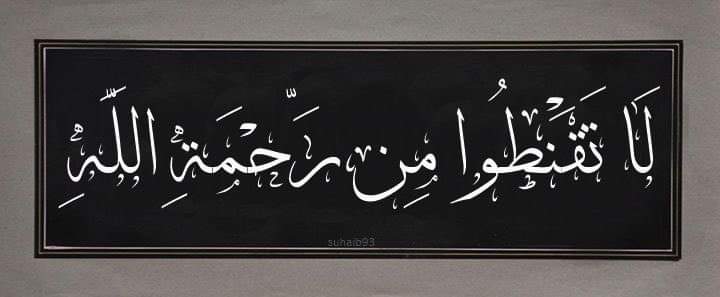 لَا تَقْنَطُوا مِن رَّحْمَةِ اللَّهِ
suhaib93